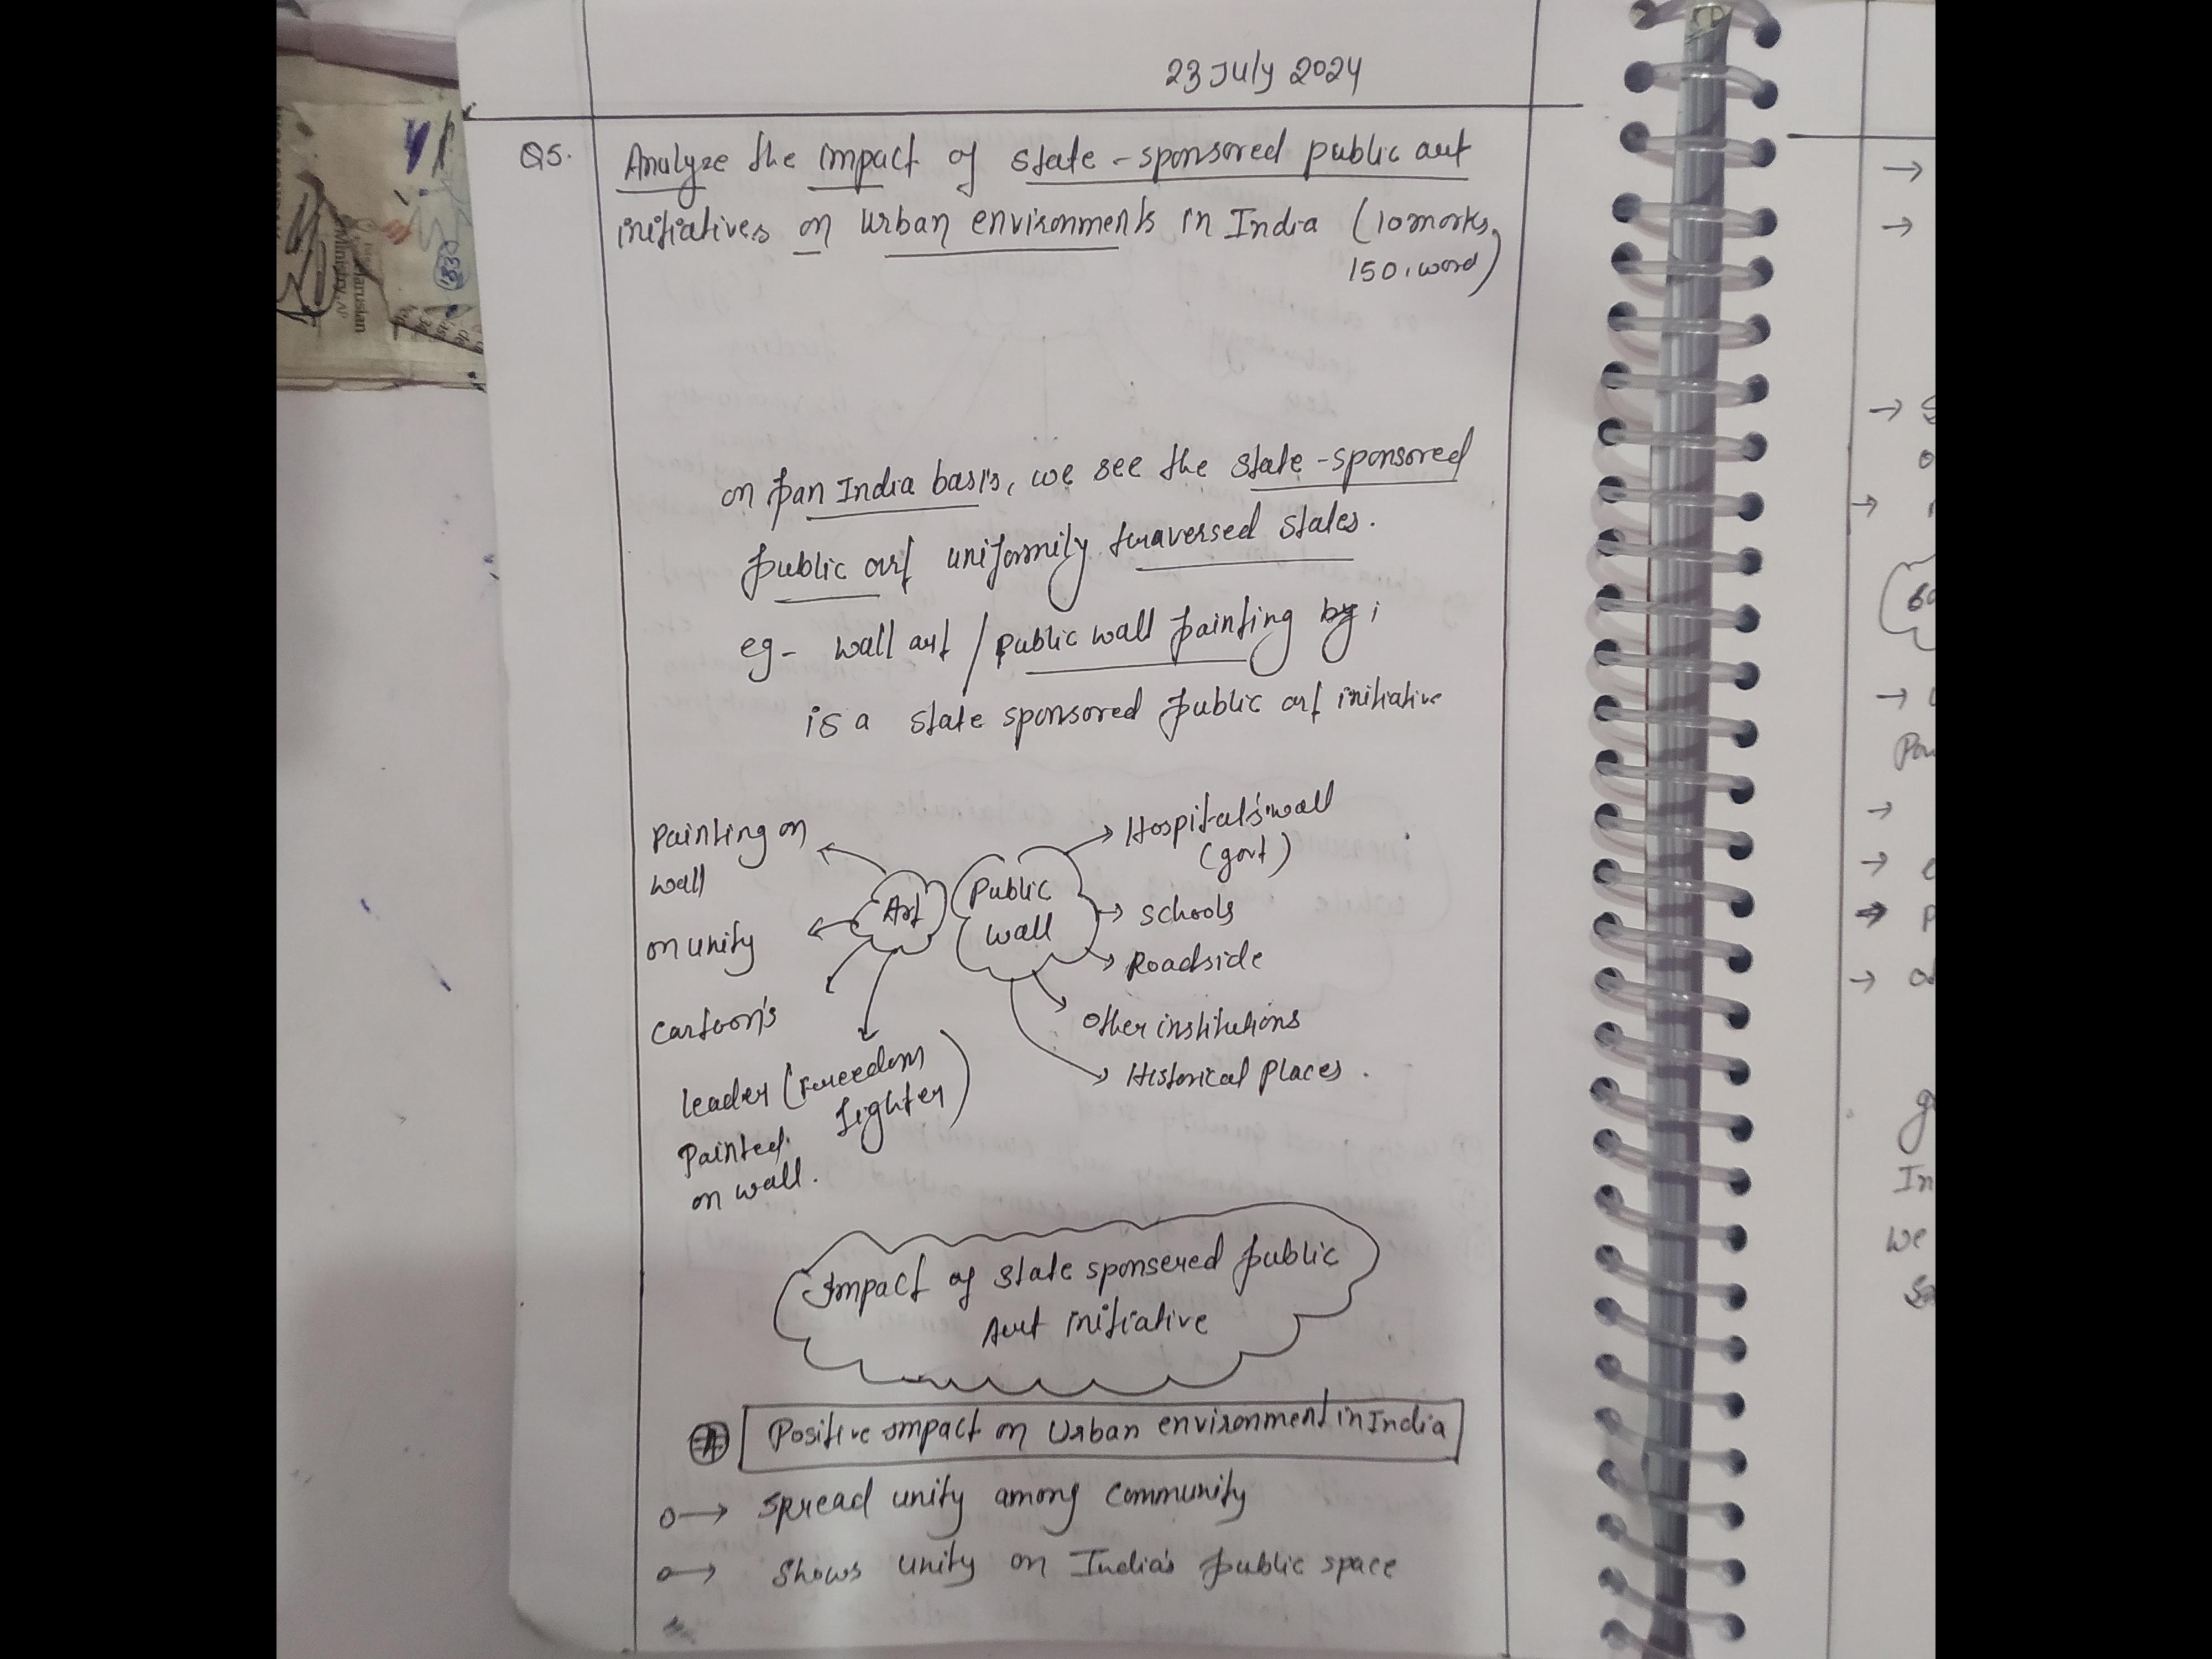 23 July 2024
Q5. Analyze the impact of state-sponsored public art
initiatives on urban environments in India (10 marks,
150 word)
on pan India basis, we see the state-sponsored
public art uniformily traversed states.
eg- wall art / public wall painting by;
is a state sponsored public art initiative
Painting on
wall
on unity
Cartoon's
leader (Freedom
fighter)
Painted
on wall.
Art
Public
wall
Hospital's wall
(govt)
Schools
Roadside
Other institutions
Historical Places.
Impact of state sponsered public
Art initiative
Positive impact on Urban environment in India
spread unity among community
Shows unity on India's public space
Ministry, AP